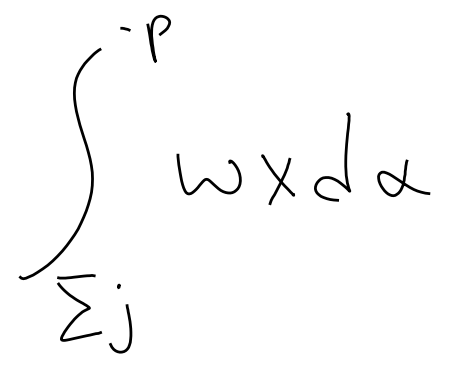 \int_{\Sigma j}^{-p} w x d \alpha